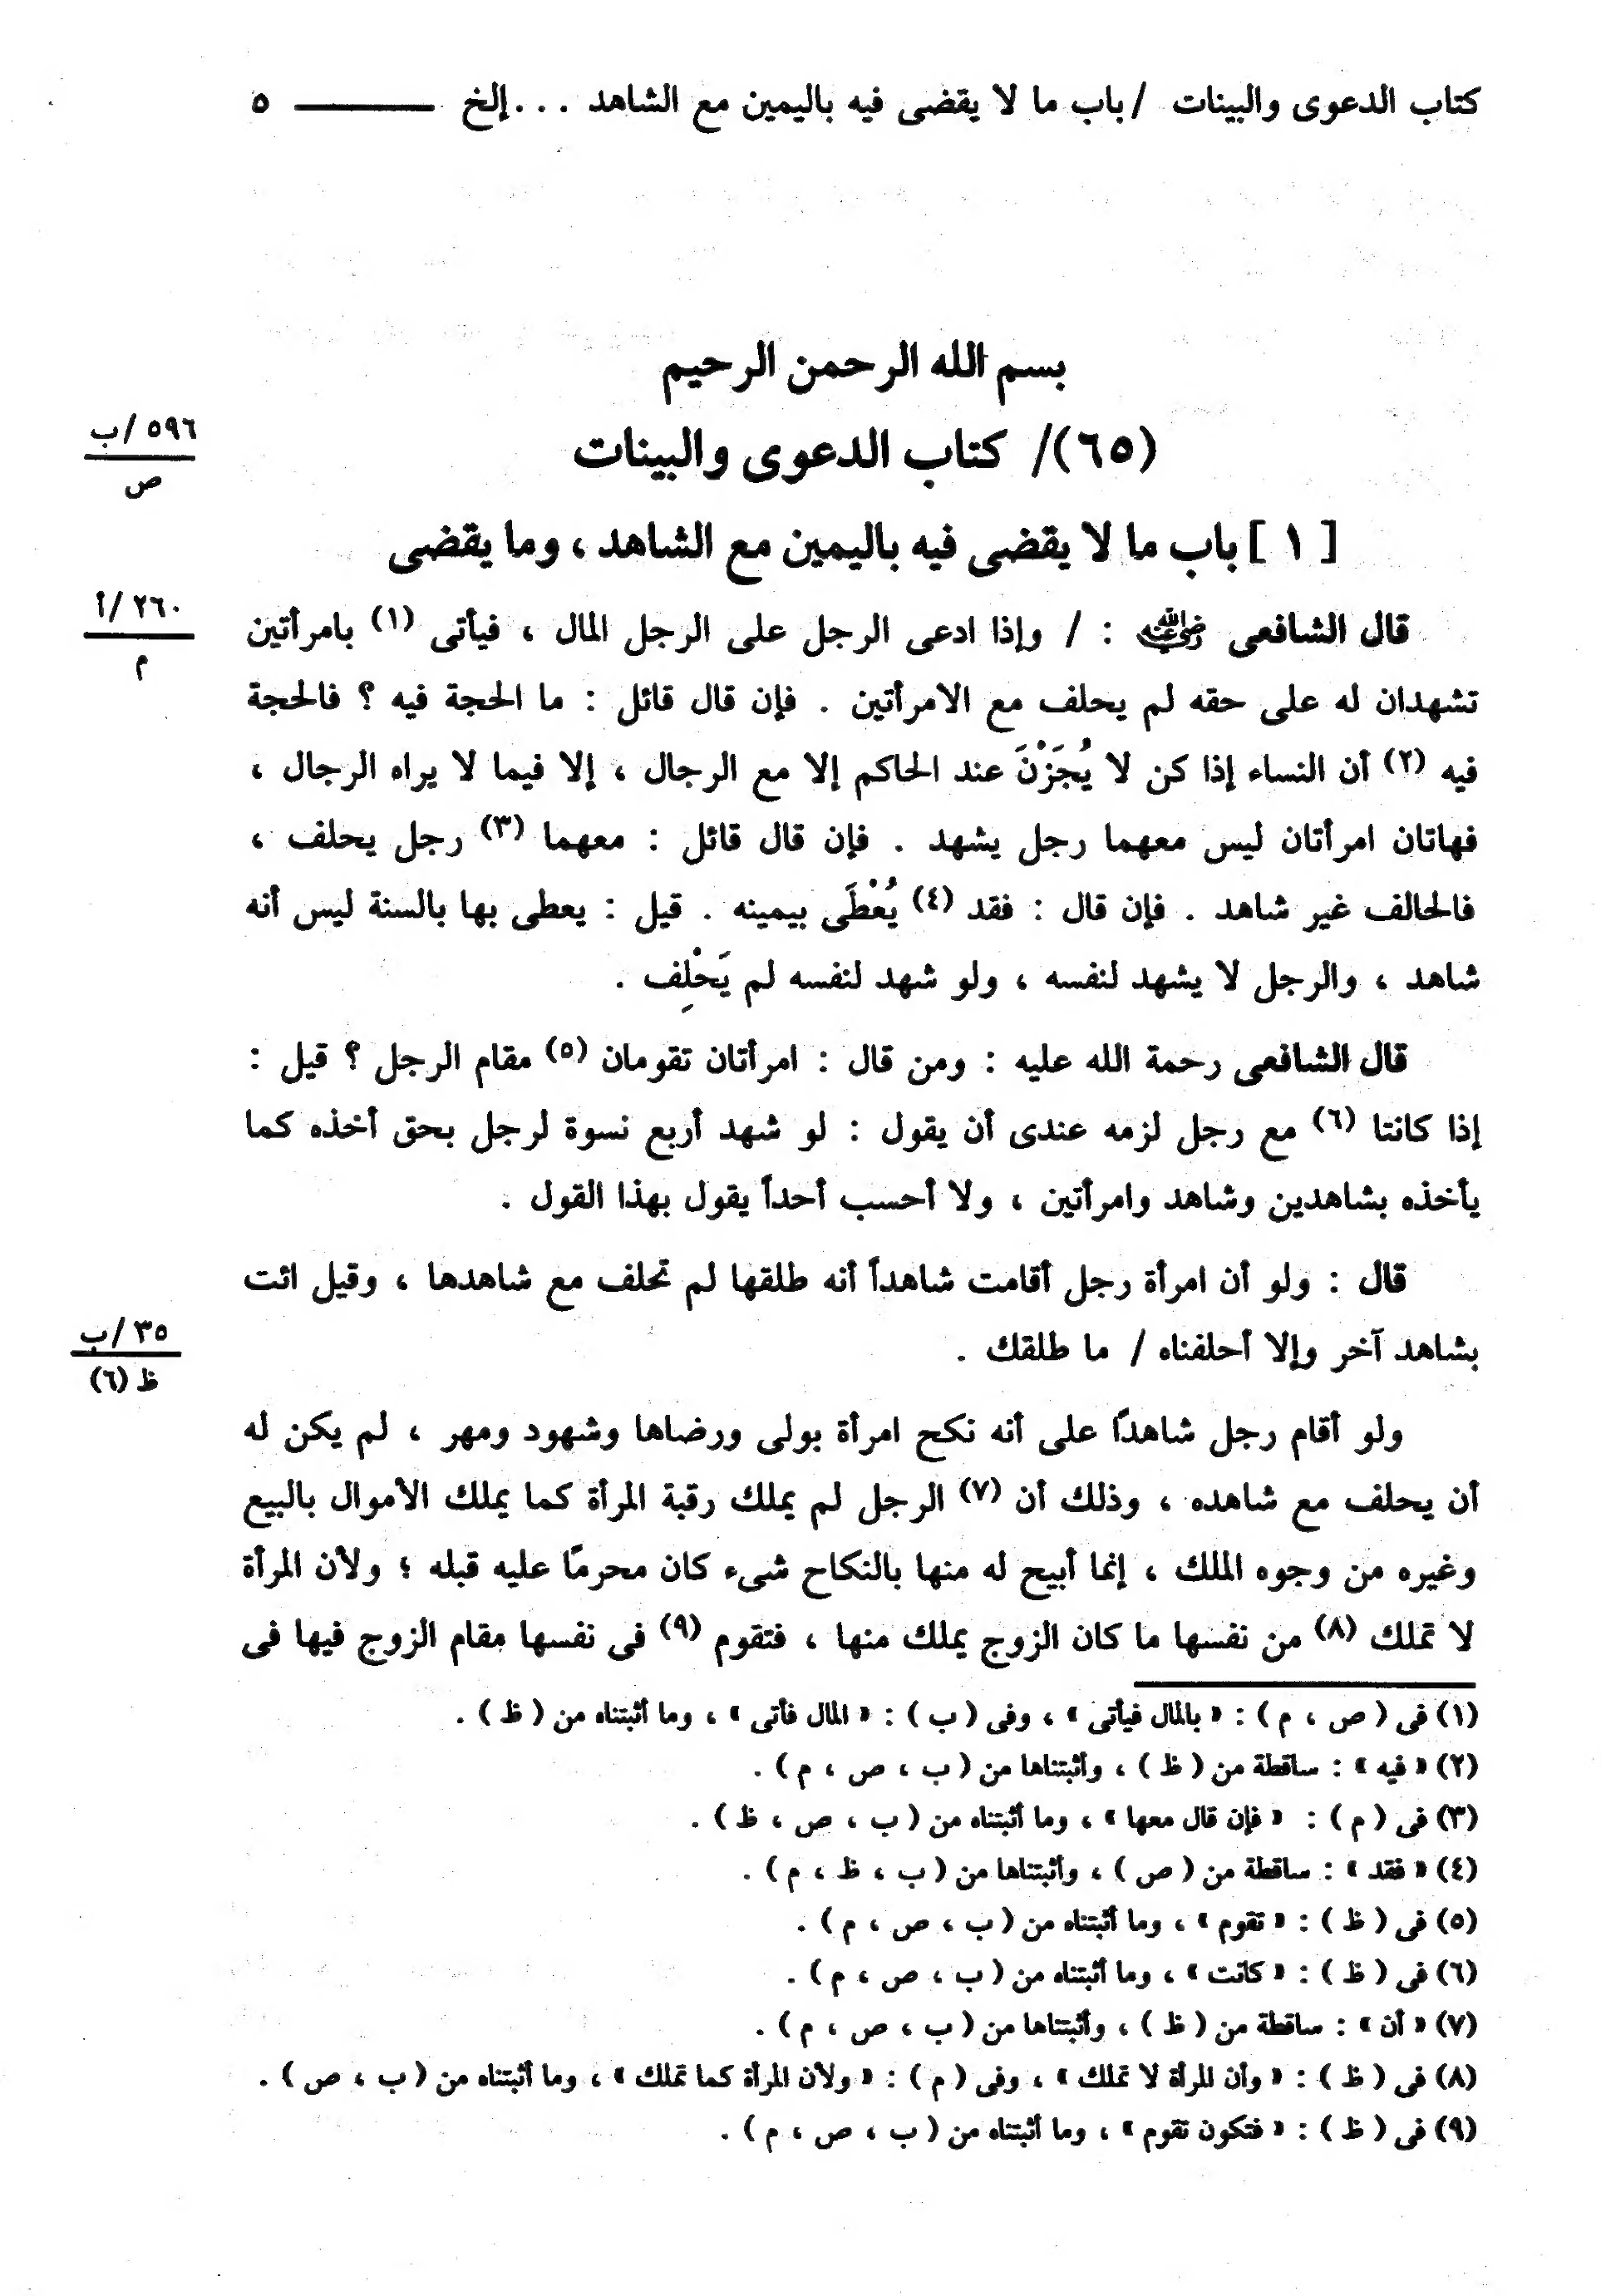 كتاب الدعوى والبينات / باب ما لا يقضى فيه باليمين مع الشاهد . . . إلخ ——— ٥
بسم الله الرحمن الرحيم
٥٩٦ /ب
ص
(٦٥)/ كتاب الدعوى والبينات
[ ١ ] باب ما لا يقضى فيه باليمين مع الشاهد ، وما يقضى
٢٦٠ /أ
م
قال الشافعى رضي الله عنه : / وإذا ادعى الرجل على الرجل المال ، فيأتى (١) بامرأتين
تشهدان له على حقه لم يحلف مع الامرأتين . فإن قال قائل : ما الحجة فيه ؟ فالحجة
فيه (٢) أن النساء إذا كن لا يُجَزْنَ عند الحاكم إلا مع الرجال ، إلا فيما لا يراه الرجال ،
فهاتان امرأتان ليس معهما رجل يشهد . فإن قال قائل : معهما (٣) رجل يحلف ،
فالحالف غير شاهد . فإن قال : فقد (٤) يُعْطَى بيمينه . قيل : يعطى بها بالسنة ليس أنه
شاهد ، والرجل لا يشهد لنفسه ، ولو شهد لنفسه لم يَحْلِف .
قال الشافعى رحمة الله عليه : ومن قال : امرأتان تقومان (٥) مقام الرجل ؟ قيل :
إذا كانتا (٦) مع رجل لزمه عندى أن يقول : لو شهد أربع نسوة لرجل بحق أخذه كما
يأخذه بشاهدين وشاهد وامرأتين ، ولا أحسب أحداً يقول بهذا القول .
قال : ولو أن امرأة رجل أقامت شاهداً أنه طلقها لم تحلف مع شاهدها ، وقيل ائت
٣٥ /ب
ظ (٦)
بشاهد آخر وإلا أحلفناه / ما طلقك .
ولو أقام رجل شاهدًا على أنه نكح امرأة بولى ورضاها وشهود ومهر ، لم يكن له
أن يحلف مع شاهده ، وذلك أن (٧) الرجل لم يملك رقبة المرأة كما يملك الأموال بالبيع
وغيره من وجوه الملك ، إنما أبيح له منها بالنكاح شىء كان محرمًا عليه قبله ؛ ولأن المرأة
لا تملك (٨) من نفسها ما كان الزوج يملك منها ، فتقوم (٩) فى نفسها مقام الزوج فيها فى
(١) فى ( ص ، م ) : « بالمال فيأتى » ، وفى ( ب ) : « المال فأتى » ، وما أثبتناه من ( ظ ) .
(٢) « فيه » : ساقطة من ( ظ ) ، وأثبتناها من ( ب ، ص ، م ) .
(٣) فى ( م ) : « فإن قال معها » ، وما أثبتناه من ( ب ، ص ، ظ ) .
(٤) « فقد » : ساقطة من ( ص ) ، وأثبتناها من ( ب ، ظ ، م ) .
(٥) فى ( ظ ) : « تقوم » ، وما أثبتناه من ( ب ، ص ، م ) .
(٦) فى ( ظ ) : « كانت » ، وما أثبتناه من ( ب ، ص ، م ) .
(٧) « أن » : ساقطة من ( ظ ) ، وأثبتناها من ( ب ، ص ، م ) .
(٨) فى ( ظ ) : « وأن المرأة لا تملك » ، وفى ( م ) : « ولأن المرأة كما تملك » ، وما أثبتناه من ( ب ، ص ) .
(٩) فى ( ظ ) : « فتكون تقوم » ، وما أثبتناه من ( ب ، ص ، م ) .